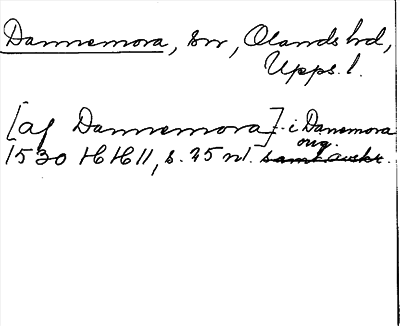 Dannemora, sn, Olands hd,
Upps. l.
[af Dannemora]. i Danemora
1530 HH 11, s. 25 nt. orig. samt. avskr.